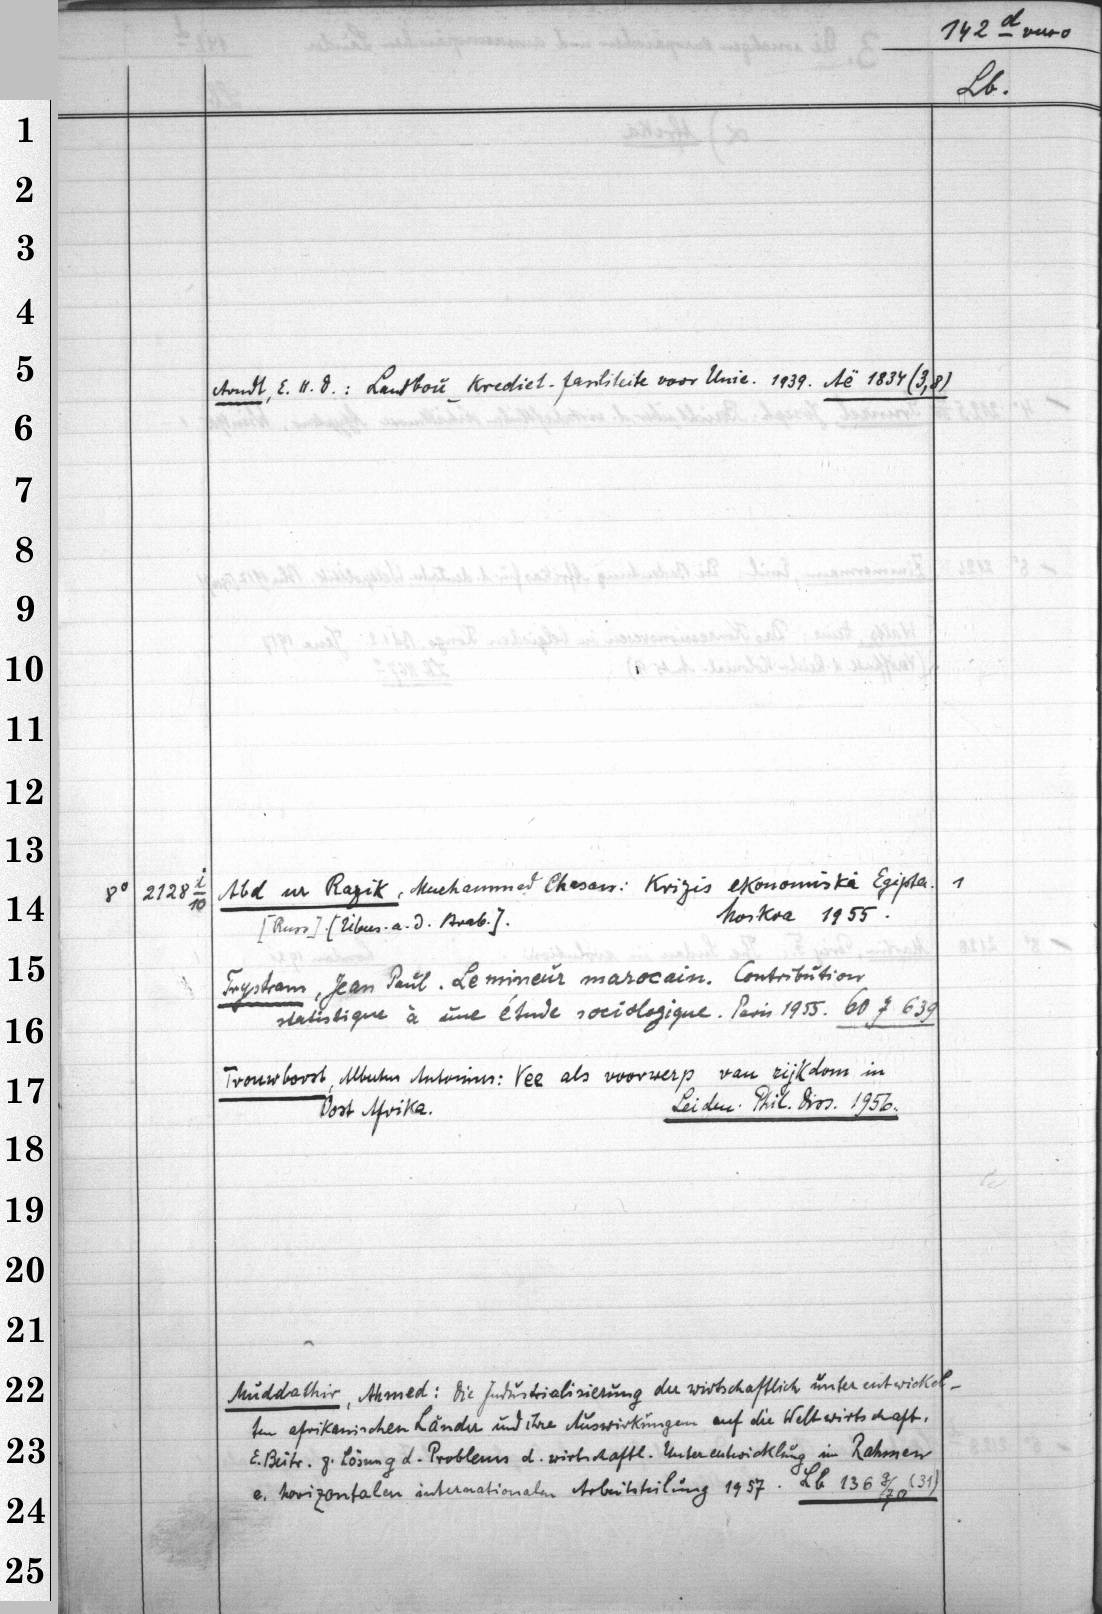 142 d verso
Lb.
1
2
3
4
5
Arndt, E. H. D.: Landboŭ-Krediet-fasiliteite voor Unie. 1939. Aë 1834 (3,8)
6
7
8
9
10
11
12
13
8° 2128 i/10 Abd ur Razik, Muchammed Chasan: Krizis ekonomiki Egipta. 1
14
[Russ]. [Übers. a. d. Arab.]. Moskva 1955.
15
Trystram, Jean Paul. Le mineur marocain. Contribution
statistique à une étude sociologique. Paris 1955. 60 7 639
16
17
Trouwborst, Albertus Antonius: Vee als voorwerp van rijkdom in
Oost Afrika. Leiden. Phil. Diss. 1956.
18
19
20
21
22
Muddathir, Ahmed: Die Industrialisierung der wirtschaftlich unterentwickel-
ten afrikanischen Länder und ihre Auswirkungen auf die Weltwirtschaft.
23
E. Beitr. z. Lösung d. Problems d. wirtschaftl. Unterentwicklung im Rahmen
e. horizontalen internationalen Arbeitsteilung 1957. Lb 136 3/70 (31)
24
25